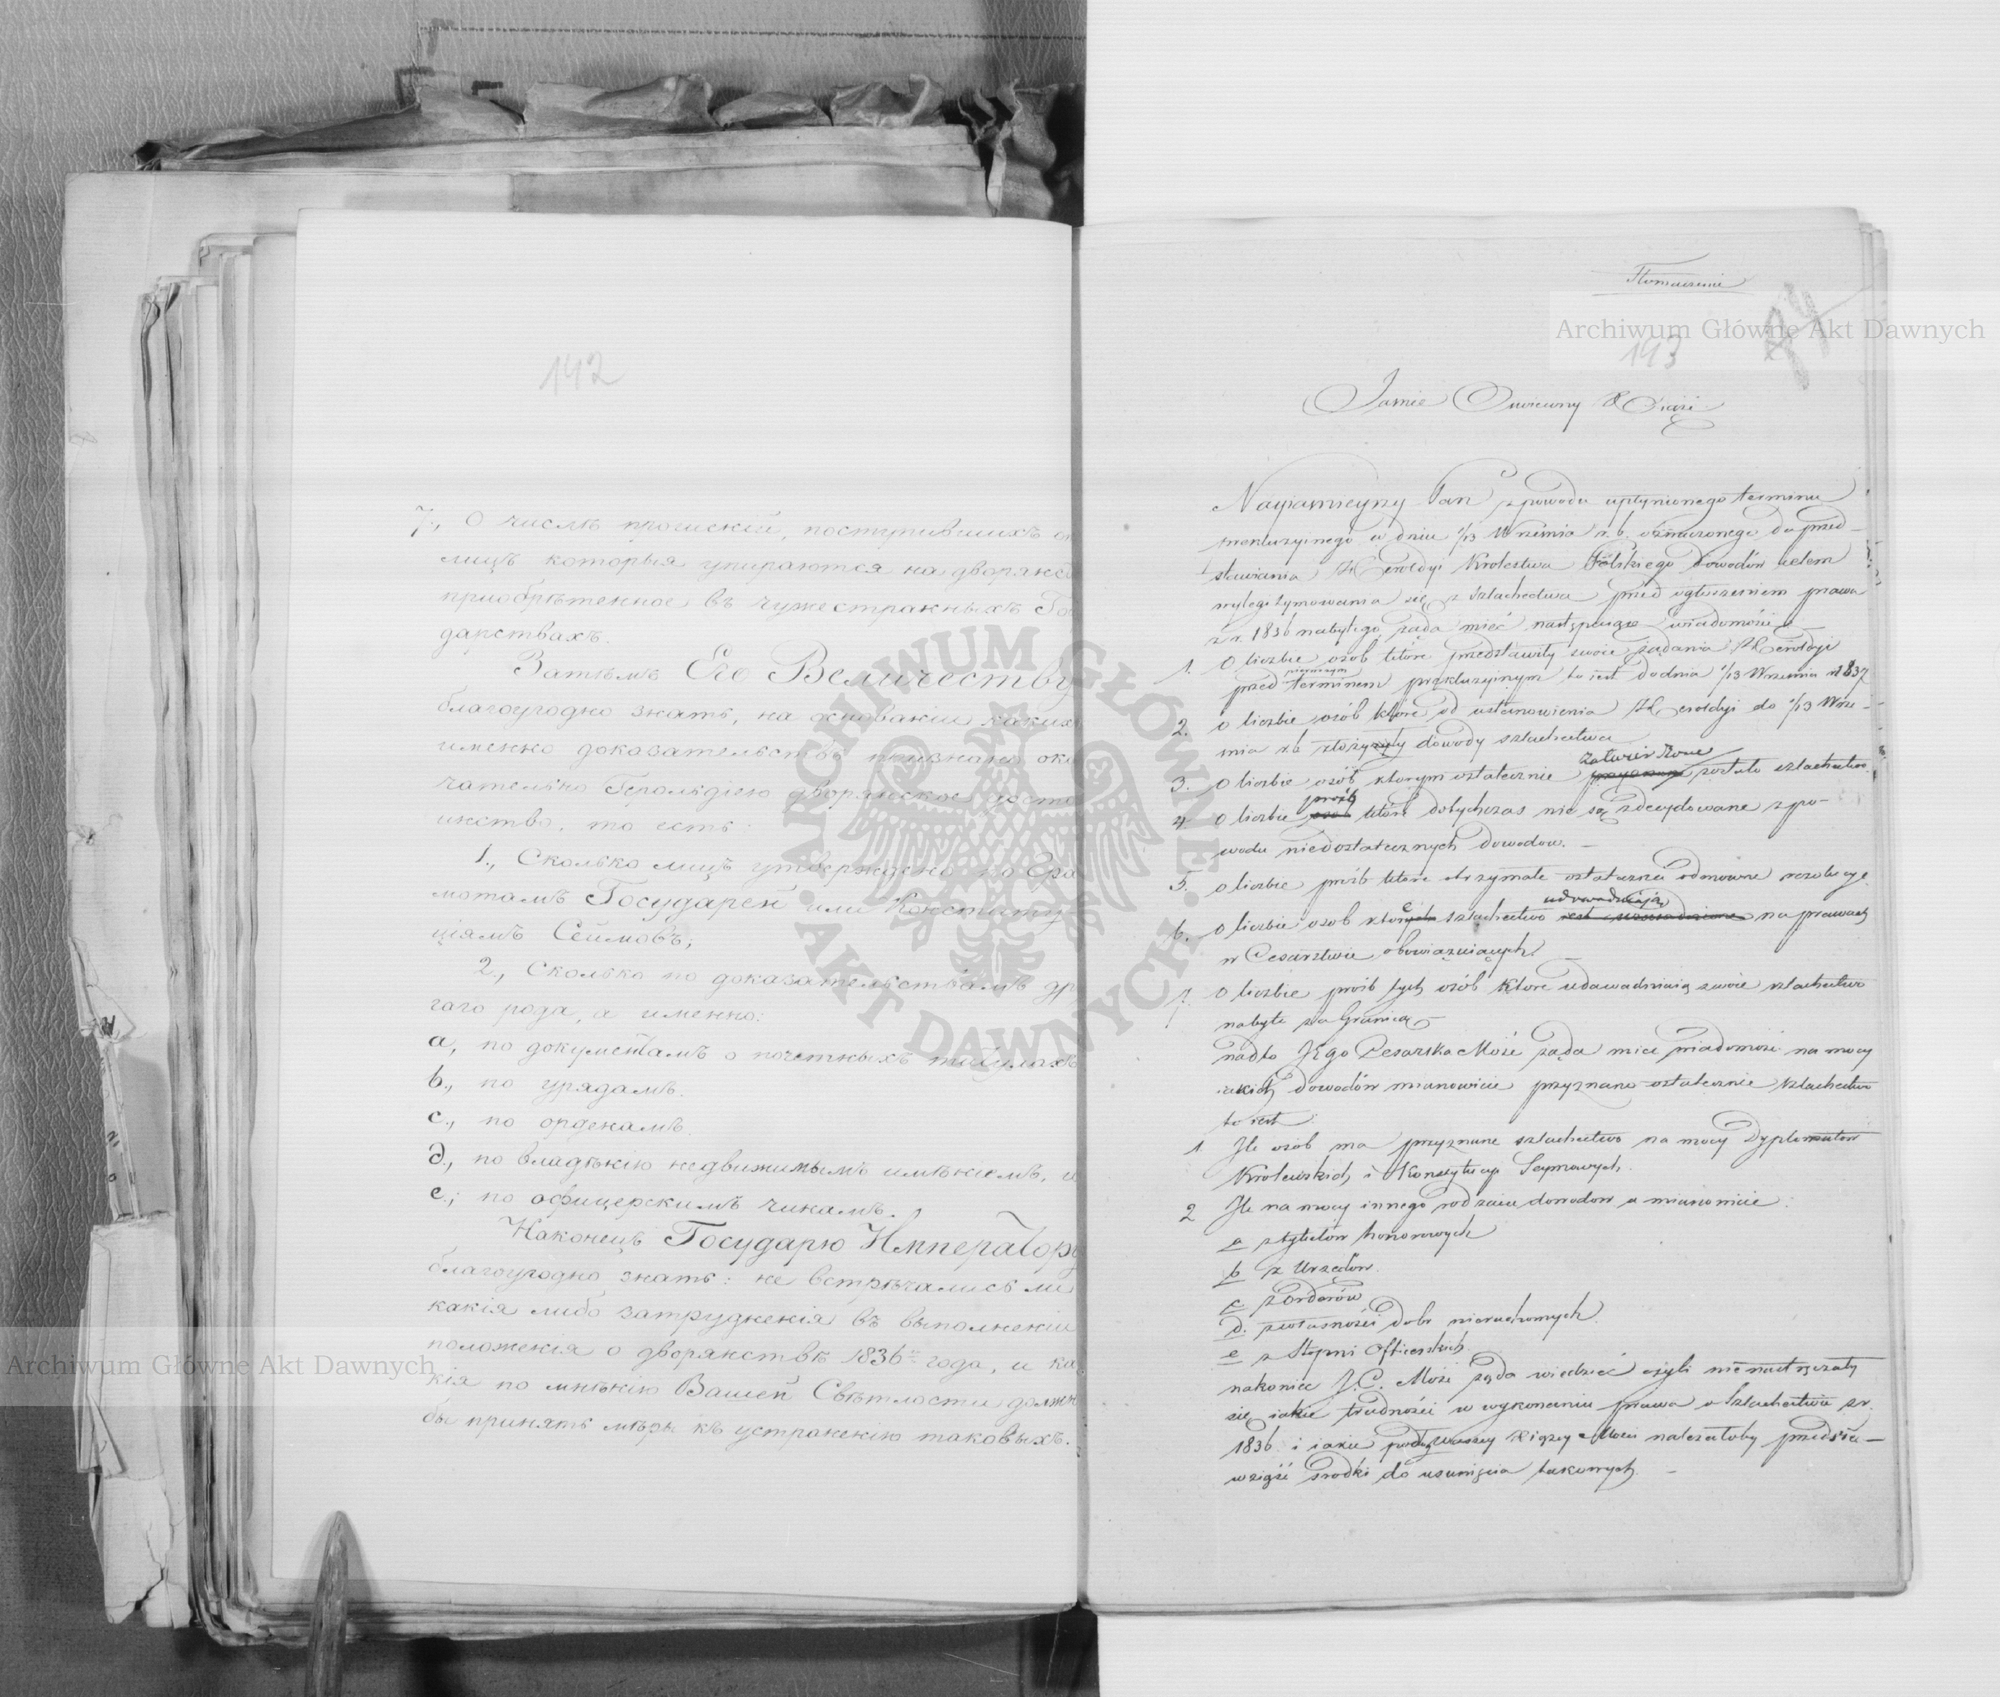 142
7., О числѣ прошеній, поступившихъ о
лицъ которыя упираются на дворянс
пріобрѣтенное въ чужестранныхъ Го
дарствахъ.
Затѣмъ Его Величеству
благоугодно знать, на основаніи какихъ
именно доказательствъ признано око
чательно Герольдіею дворянское досто
инство, то есть:
1., Сколько лицъ утверждено по Гра
мотамъ Государей или Конститу
ціямъ Сеймовъ;
2., Сколько по доказательствамъ др
гаго рода, а именно:
а, по документамъ о почетныхъ титулахъ
b., по урядамъ.
c., по орденамъ.
д., по владѣнію недвижимымъ имѣніемъ, и
е., по офицерскимъ чинамъ.
Наконецъ Государю Императору
благоугодно знать: не встрѣчались ли
какія либо затрудненія въ выполненіи
положенія о дворянствѣ 1836го года, и ка
кія по мнѣнію Вашей Свѣтлости должн
бы принять мѣры къ устраненію таковыхъ.
Tłomaczenie
143
Jaśnie Oświecony Xiąże
Nayiaśnieyszy Pan z powodu upłynionego terminu
prekluzyinego w dniu 1/13 Września r. b. oznaczonego do przed-
stawienia Heroldyi Królestwa Polskiego dowodów celem
wylegitymowania się z szlachectwa przed ogłoszeniem prawa
z r. 1836 nabytego żąda mieć następuiące wiadomości
1. O liczbie osób które przedstawiły swoie żądania Heroldyi
przed pierwszym terminem prekluzyinym to iest do dnia 1/13 Września r 1837
2. o liczbie osób które od ustanowienia Heroldyi do 1/13 Wrze-
śnia r.b. złożyły dowody szlachectwa
3. o liczbie osób którym ostatecznie zatwierdzone zostało szlachectwo
4 o liczbie próśb które dotychczas nie są zdecydowane z po-
wodu niedostatecznych dowodów.
5. o liczbie próśb które otrzymałe ostateczne odmowne rezolucye.
6. o liczbie osób które szlachectwo udowadniają na prawach
w Cesarstwie obowiązuiących.
7. O liczbie próśb tych osób które udawadniaią swoie szlachectwo
nabyte za Granicą
nadto Jego Cesarska Mość żąda mieć wiadomość na mocy
iakich dowodów mianowicie przyznano ostatecznie szlachectwo
to iest:
1. Ile osób ma przyznane szlachectwo na mocy Dyplomatów
Królewskich i Konstytucyi Seymowych.
2 Ile na mocy innego rodzaiu dowodów a mianowicie:
a z tytułów honorowych
b z Urzędów.
c z Orderów
d. z własności dóbr nieruchomych.
e z Stopni Officerskich.
nakoniec J.C. Mość żąda wiedzieć czyli nie nastręczały
się iakie trudności w wykonaniu prawa o szlachectwie z r.
1836. i iakie podług Waszey Xiążęcey Mości należałoby przedsię-
wziąść środki do usunięcia takowych. -
Archiwum Główne Akt Dawnych
Archiwum Główne Akt Dawnych
ARCHIWUM GŁÓWNE
AKT DAWNYCH